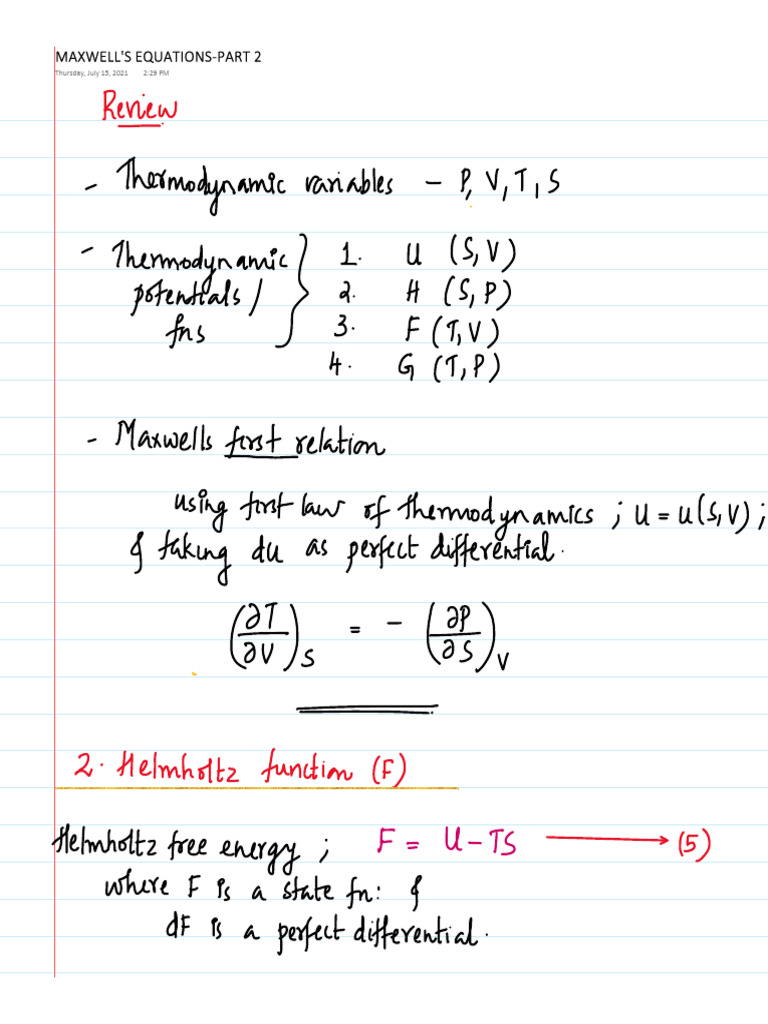 MAXWELL'S EQUATIONS-PART 2
Thursday, July 15, 2021 2:29 PM
Review
- Thermodynamic variables - P, V, T, S
- Thermodynamic potentials / fns }
1. U (S, V)
2. H (S, P)
3. F (T, V)
4. G (T, P)
- Maxwells first relation
using first law of thermodynamics ; U = U(S, V) ;
& taking dU as perfect differential.
(∂T/∂V)_S = - (∂P/∂S)_V
2. Helmholtz function (F)
Helmholtz free energy ; F = U - TS ⟶ (5)
where F is a state fn: &
dF is a perfect differential.